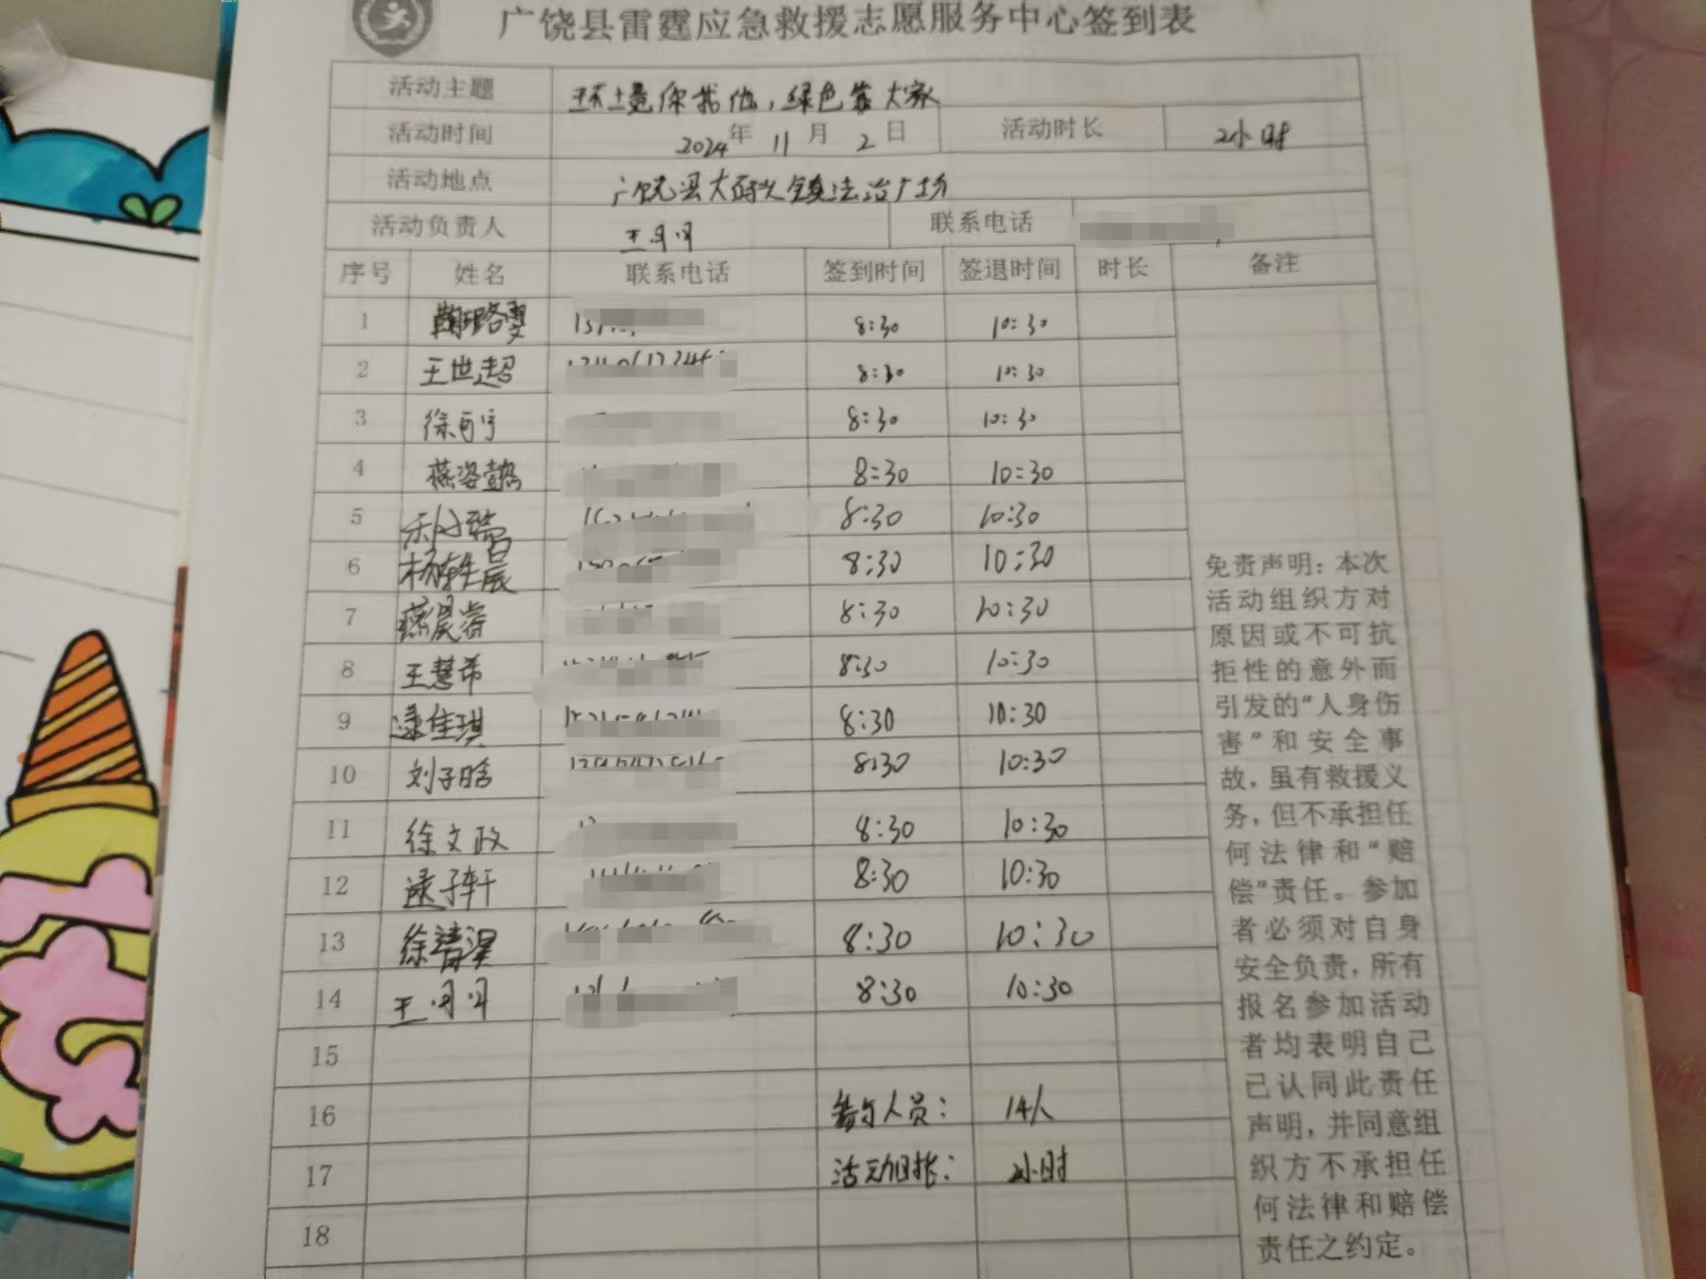 广饶县雷霆应急救援志愿服务中心签到表
活动主题 环境你我他，绿色靠大家
活动时间 2024年 11月 2日 活动时长 2小时
活动地点 广饶县大码头镇法治广场
活动负责人 王月月 联系电话
序号 姓名 联系电话 签到时间 签退时间 时长 备注
1 8:30 10:30
2 王世超 8:30 10:30
3 徐可宁 8:30 10:30
4 燕姿懿 8:30 10:30
5 8:30 10:30
6 杨轶晨 8:30 10:30
7 燕晨睿 8:30 10:30
8 王慧希 8:30 10:30
9 逯佳琪 8:30 10:30
10 刘子晗 8:30 10:30
11 徐文政 8:30 10:30
12 逯子轩 8:30 10:30
13 徐清淏 8:30 10:30
14 王月月 8:30 10:30
15
16 参与人员： 14人
17 活动时长： 2小时
18
免责声明：本次
活动组织方对
原因或不可抗
拒性的意外而
引发的“人身伤
害”和安全事
故，虽有救援义
务，但不承担任
何法律和“赔
偿”责任。参加
者必须对自身
安全负责，所有
报名参加活动
者均表明自己
已认同此责任
声明，并同意组
织方不承担任
何法律和赔偿
责任之约定。